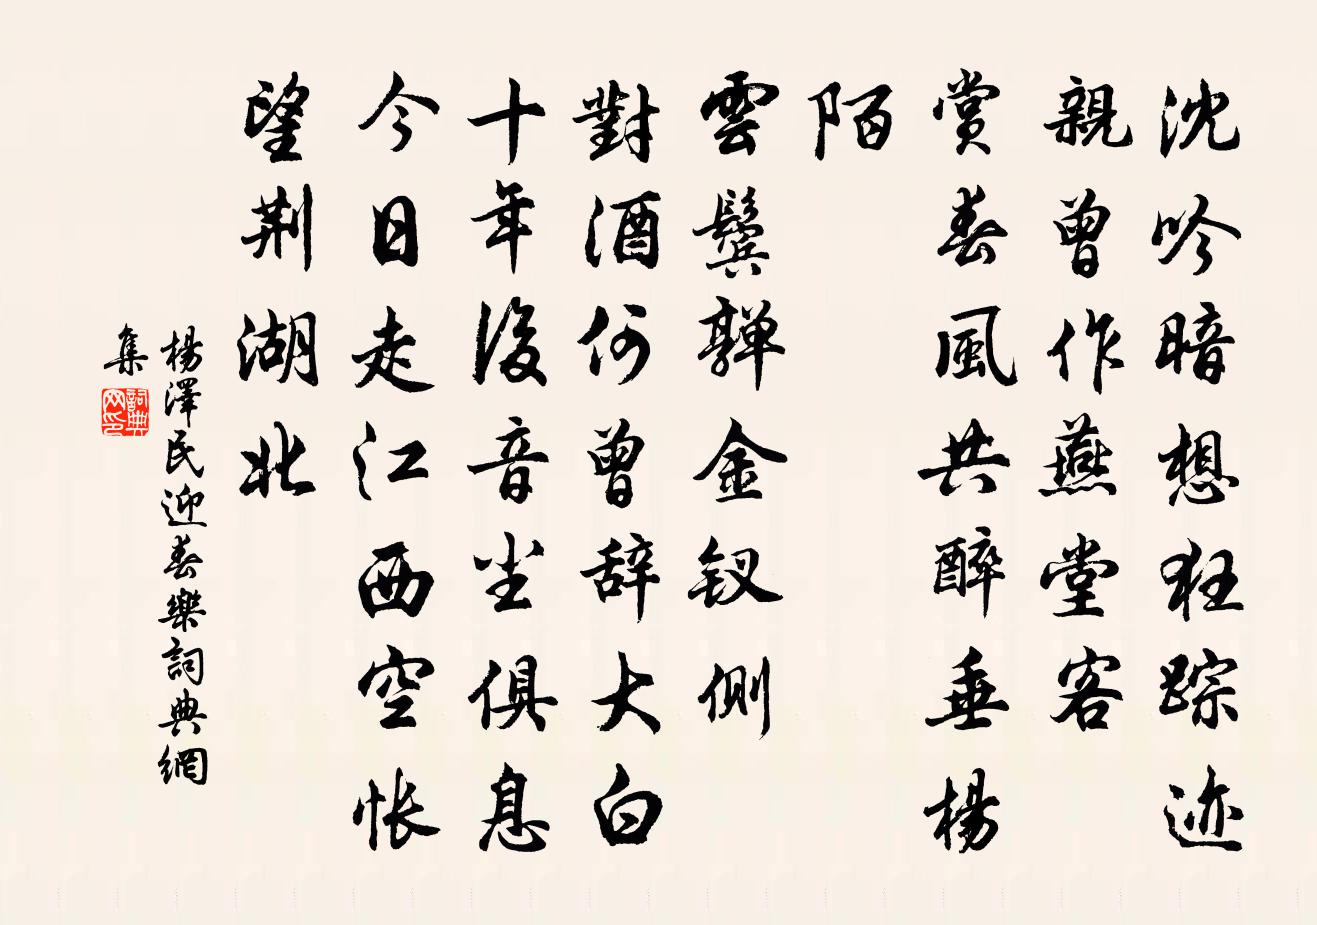 沈吟暗想狂踪迹
親曾作燕堂客
賞春風共醉垂楊
陌
雲鬢軃金钗側
對酒何曾辞大白
十年後音尘俱息
今日走江西空怅
望荆湖北
楊澤民迎春樂詞典網
集
詞典
网印